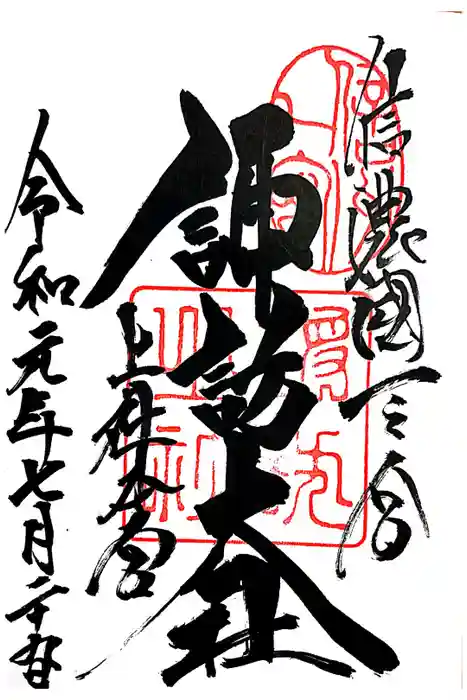 信濃國一之宮
諏訪大社
上社本宮
令和元年七月二十